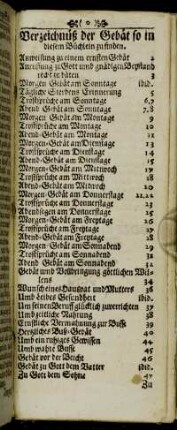 Verzeichnüß der Gebät so in
diesem Büchlein zu finden.
Anweisung zu einem ernsten Gebät 2
Anruffung zu Gott umb gnädigen Beystand
recht zu bäten 3
Morgen Gebät am Sonntage ibid.
Täglicher Sterbens Erinnerung 5
Trostsprüche am Sonntage 6.7
Abend Gebät am Sonntage 7.8
Morgen-Gebät am Montage 9
Trostsprüche am Montage 10
Abend-Gebät am Montage
Morgen-Gebät am Dienstage 13
Trostsprüche am Dienstage 14
Abend-Gebät am Dienstage 15
Morgen-Gebät am Mitwoch 17
Trostsprüche am Mittwoch 18
Abend-Gebät am Mitwoch 20
Morgen-Gebät am Donnerstage 21.22
Trostsprüche am Donnerstage 23
Abendsegen am Donnerstage 25
Morgen-Gebät am Freytage 26
Trostsprüche am Freytage 28
Abend-Gebät am Freytage
Morgen-Gebät am Sonnabend 29
Trostsprüche am Sonnabend 31
Abend Gebät am Sonnabend 32
Gebät umb Vollbringung göttlichen Wil-
lens 34
Wunsch eines Hausvat und Mutters 36
Umb Leibes Gesundheit ibid.
Um seinen Beruff glücklich zu verrichten 37
Umb zeitliche Nahrung 38
Ernstliche Vermahnung zur Busse 39
Hertzliches Buß-Gebät 40
Umb ein ruhiges Gewissen 44
Umb wahre Busse 45
Gebät vor der Beicht 46
Gebät zu Gott dem Vatter ibid.
Zu Gott dem Sohne 47
Zu